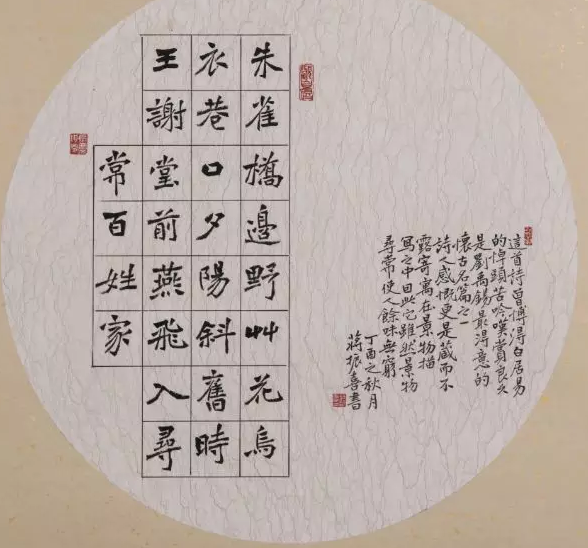 朱雀橋邊野艸花烏
衣巷口夕陽斜舊時
王謝堂前燕飛入尋
常百姓家
這首詩曾博得白居易
的悼頭苦吟嘆賞良久
是劉禹錫最得意的
懷古名篇之一
詩人感慨更是藏而不
露寄寓在景物描
寫之中因此它雖然景物
尋常使人餘味無窮
丁酉之秋月
蔣振喜書